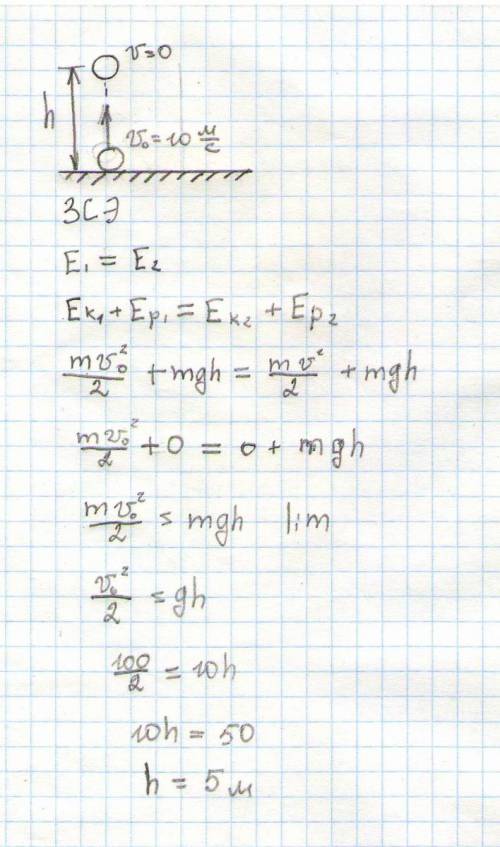 v=0
h
v₀=10 м/с
ЗСЭ
E₁ = E₂
Eк₁ + Ep₁ = Eк₂ + Ep₂
mv₀²/2 + mgh = mv²/2 + mgh
mv₀²/2 + 0 = 0 + mgh
mv₀²/2 = mgh |:m
v₀²/2 = gh
100/2 = 10h
10h = 50
h = 5 м